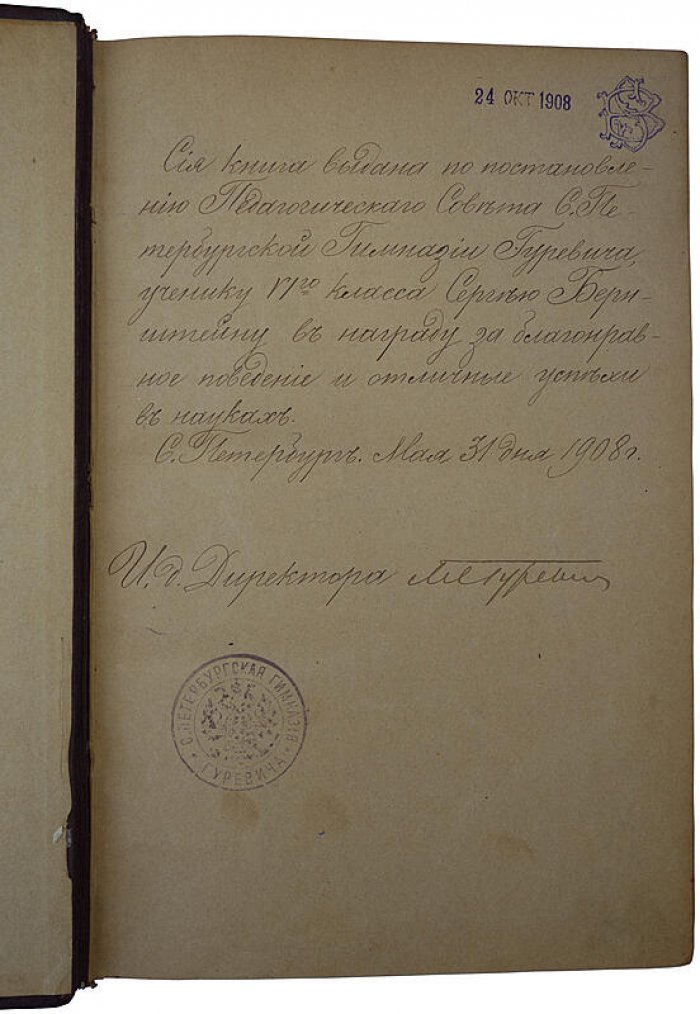 24 ОКТ 1908
Сія книга выдана по постановле-
нію Педагогическаго Совѣта С. Пе-
тербургской Гимназіи Гуревича,
ученику VIго класса Сергѣю Берн-
штейну въ награду за благонрав-
ное поведеніе и отличные успѣхи
въ наукахъ.
С. Петербургъ. Мая 31 дня 1908 г.
И. д. Директора Гуревич
С. ПЕТЕРБУРГСКАЯ ГИМНАЗІЯ
ГУРЕВИЧА